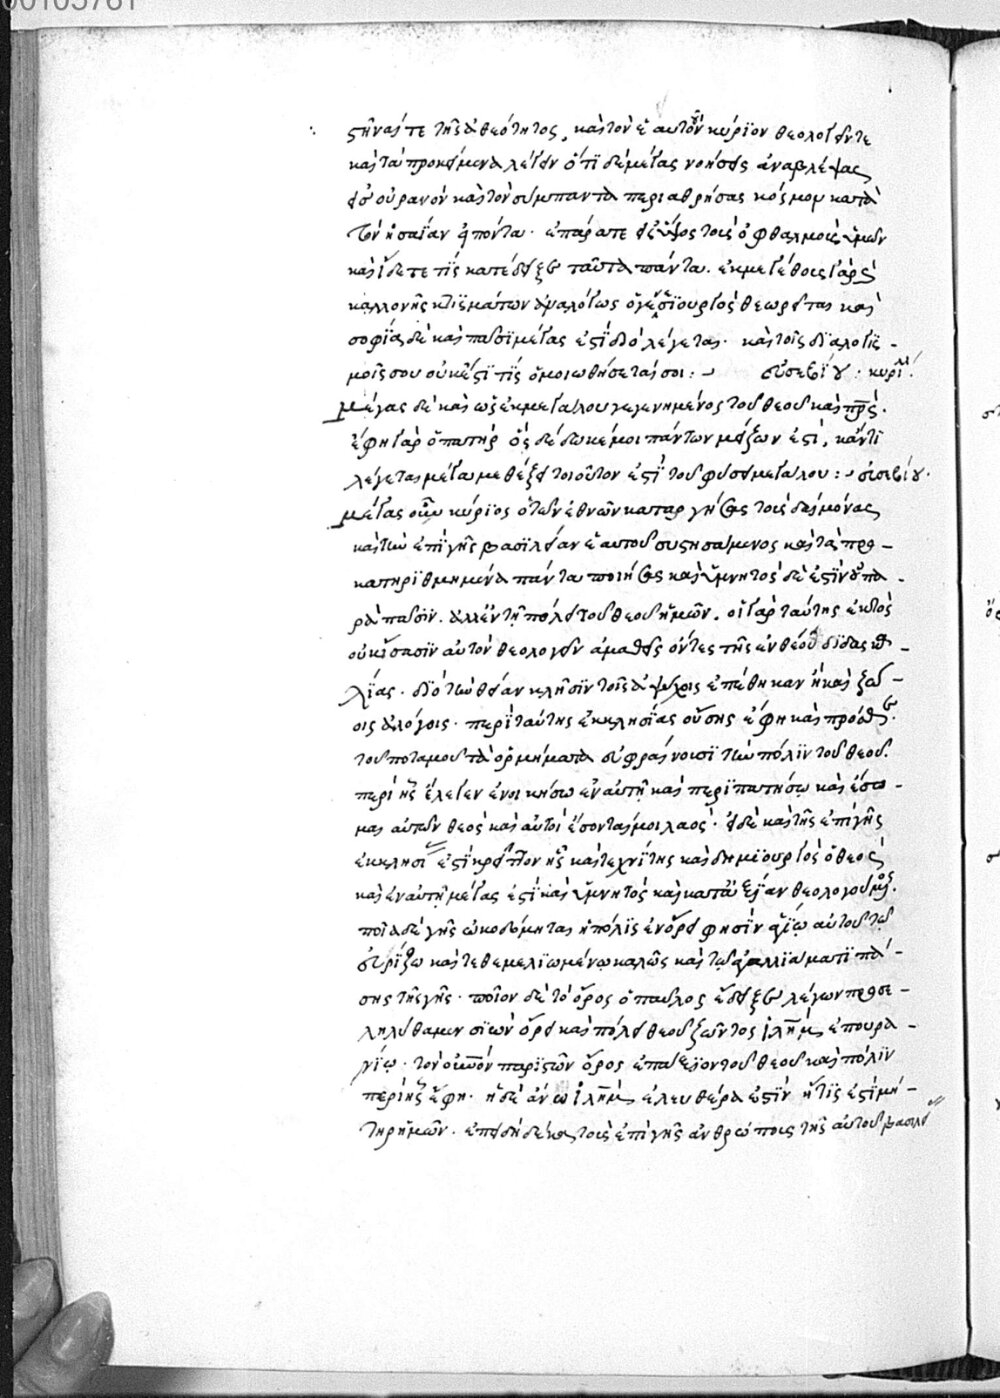 00105761
στῆναί τε τῆς ἀθεότητος, καὶ τὸν ἑαυτῶν κύριον θεολογεῖν τε
καὶ τὰ προκείμενα λέγειν ὅτι δὲ μέγας νοήσεις ἀναβλέψας
εἰς οὐρανὸν καὶ τὸν σύμπαντα περιαθρήσας κόσμον κατὰ
τὸν ἡσαΐαν εἰπόντα. ἐπάρατε εἰς ὕψος τοὺς ὀφθαλμοὺς ὑμῶν
καὶ ἴδετε τίς κατέδειξε ταῦτα πάντα. ἐκ μεγέθους γὰρ
καλλονῆς κτισμάτων ἀναλόγως ὁ γενεσιουργὸς θεωρεῖται καὶ
σοφίας δὲ καὶ πᾶσι μέγας ἐστὶ διὸ λέγεται. καὶ τοῖς διαλογισ-
μοῖς σου οὐκ ἔστι τίς ὁμοιωθήσεταί σοι: εὐσεβίου. κυρίλλ
μέγας δὲ καὶ ὡς ἐκ μεγάλου γεγενημένος τοῦ θεοῦ καὶ πρς.
ἔφη γὰρ ὁ πατὴρ ὃς δέδωκέ μοι πάντων μείζων ἐστί, κἄν τι
λέγεται μέγα μεθέξει τοιοῦτον ἐστὶ τοῦ φύσει μεγάλου: εὐσεβίου.
μέγας οὖν κύριος ὁ τῶν ἐθνῶν καταργήσας τοὺς δαίμονας
καὶ τὴν ἐπὶ γῆς βασιλείαν ἑαυτοῦ συστησάμενος καὶ τὰ προ-
κατηριθμημένα πάντα ποιήσας καὶ ὑμνητὸς δέ ἐστιν οὐ πα-
ρὰ πᾶσιν. ἀλλ' ἐν τῇ πόλει τοῦ θεοῦ ἡμῶν. οἱ γὰρ ταύτης ἐκτὸς
οὐκ ἴσασιν αὐτὸν θεολογεῖν ἀμαθεῖς ὄντες τῆς ἐνθέου διδασκα-
λίας. διὸ τὴν θείαν κλῆσιν τοῖς ἀψύχοις ἐπέθηκαν ἢ καὶ ζῴ-
οις ἀλόγοις. περὶ ταύτης ἐκκλησίας οὔσης ἔφη καὶ πρόσθεν.
τοῦ ποταμοῦ τὰ ὁρμήματα εὐφραίνουσι τὴν πόλιν τοῦ θεοῦ.
περὶ ἧς ἔλεγεν ἐνοικήσω ἐν αὐτῇ καὶ περιπατήσω καὶ ἔσο-
μαι αὐτῶν θεὸς καὶ αὐτοὶ ἔσονταί μοι λαός. εἰ δὲ καὶ τῆς ἐπὶ γῆς
ἐκκλησίας ἐστὶ κρεῖττον ἧς καὶ τεχνίτης καὶ δημιουργὸς ὁ θεὸς
καὶ ἐν αὐτῇ μέγας ἐστὶ καὶ ὑμνητὸς καὶ κατ' ἀξίαν θεολογούμενος.
ποίᾳ δὲ γῆς ᾠκοδόμηται ἡ πόλις ἐν ὄρει φησὶν ἁγίῳ αὐτοῦ τῷ
εὐρίζῳ καὶ τεθεμελιωμένῳ καλῶς καὶ τῷ ἀγαλλιάματι πά-
σης τῆς γῆς. ποῖον δὲ τὸ ὄρος ὁ παῦλος ἔδειξε λέγων προσε-
ληλύθαμεν σιὼν ὄρει καὶ πόλει θεοῦ ζῶντος ἰλημ ἐπουρα-
νίῳ. τὸν οὐνον παριστῶν ὄρος ἐπάξιον τοῦ θεοῦ καὶ πόλιν
περὶ ἧς ἔφη. ἡ δὲ ἄνω ἰλημ ἐλευθέρα ἐστὶν ἥτις ἐστὶ μή-
τηρ ἡμῶν. ἐπειδὴ δὲ καὶ τοῖς ἐπὶ γῆς ἀνθρώποις τῆς αὐτοῦ βασιλεί